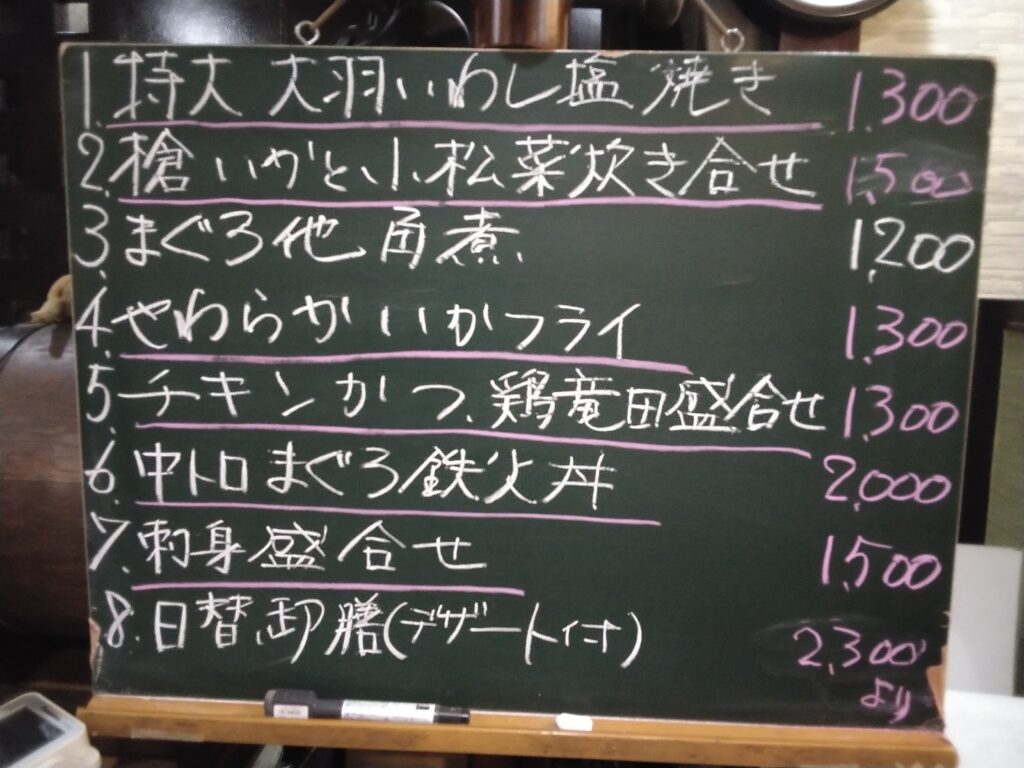 1. 特大 大羽いわし塩焼き 1,300
2. 槍いかと小松菜炊き合せ 1,500
3. まぐろ他角煮 1,200
4. やわらかいかフライ 1,300
5. チキンかつ、鶏竜田盛合せ 1,300
6. 中トロまぐろ鉄火丼 2,000
7. 刺身盛合せ 1,500
8. 日替御膳(デザート付) 2,300
より